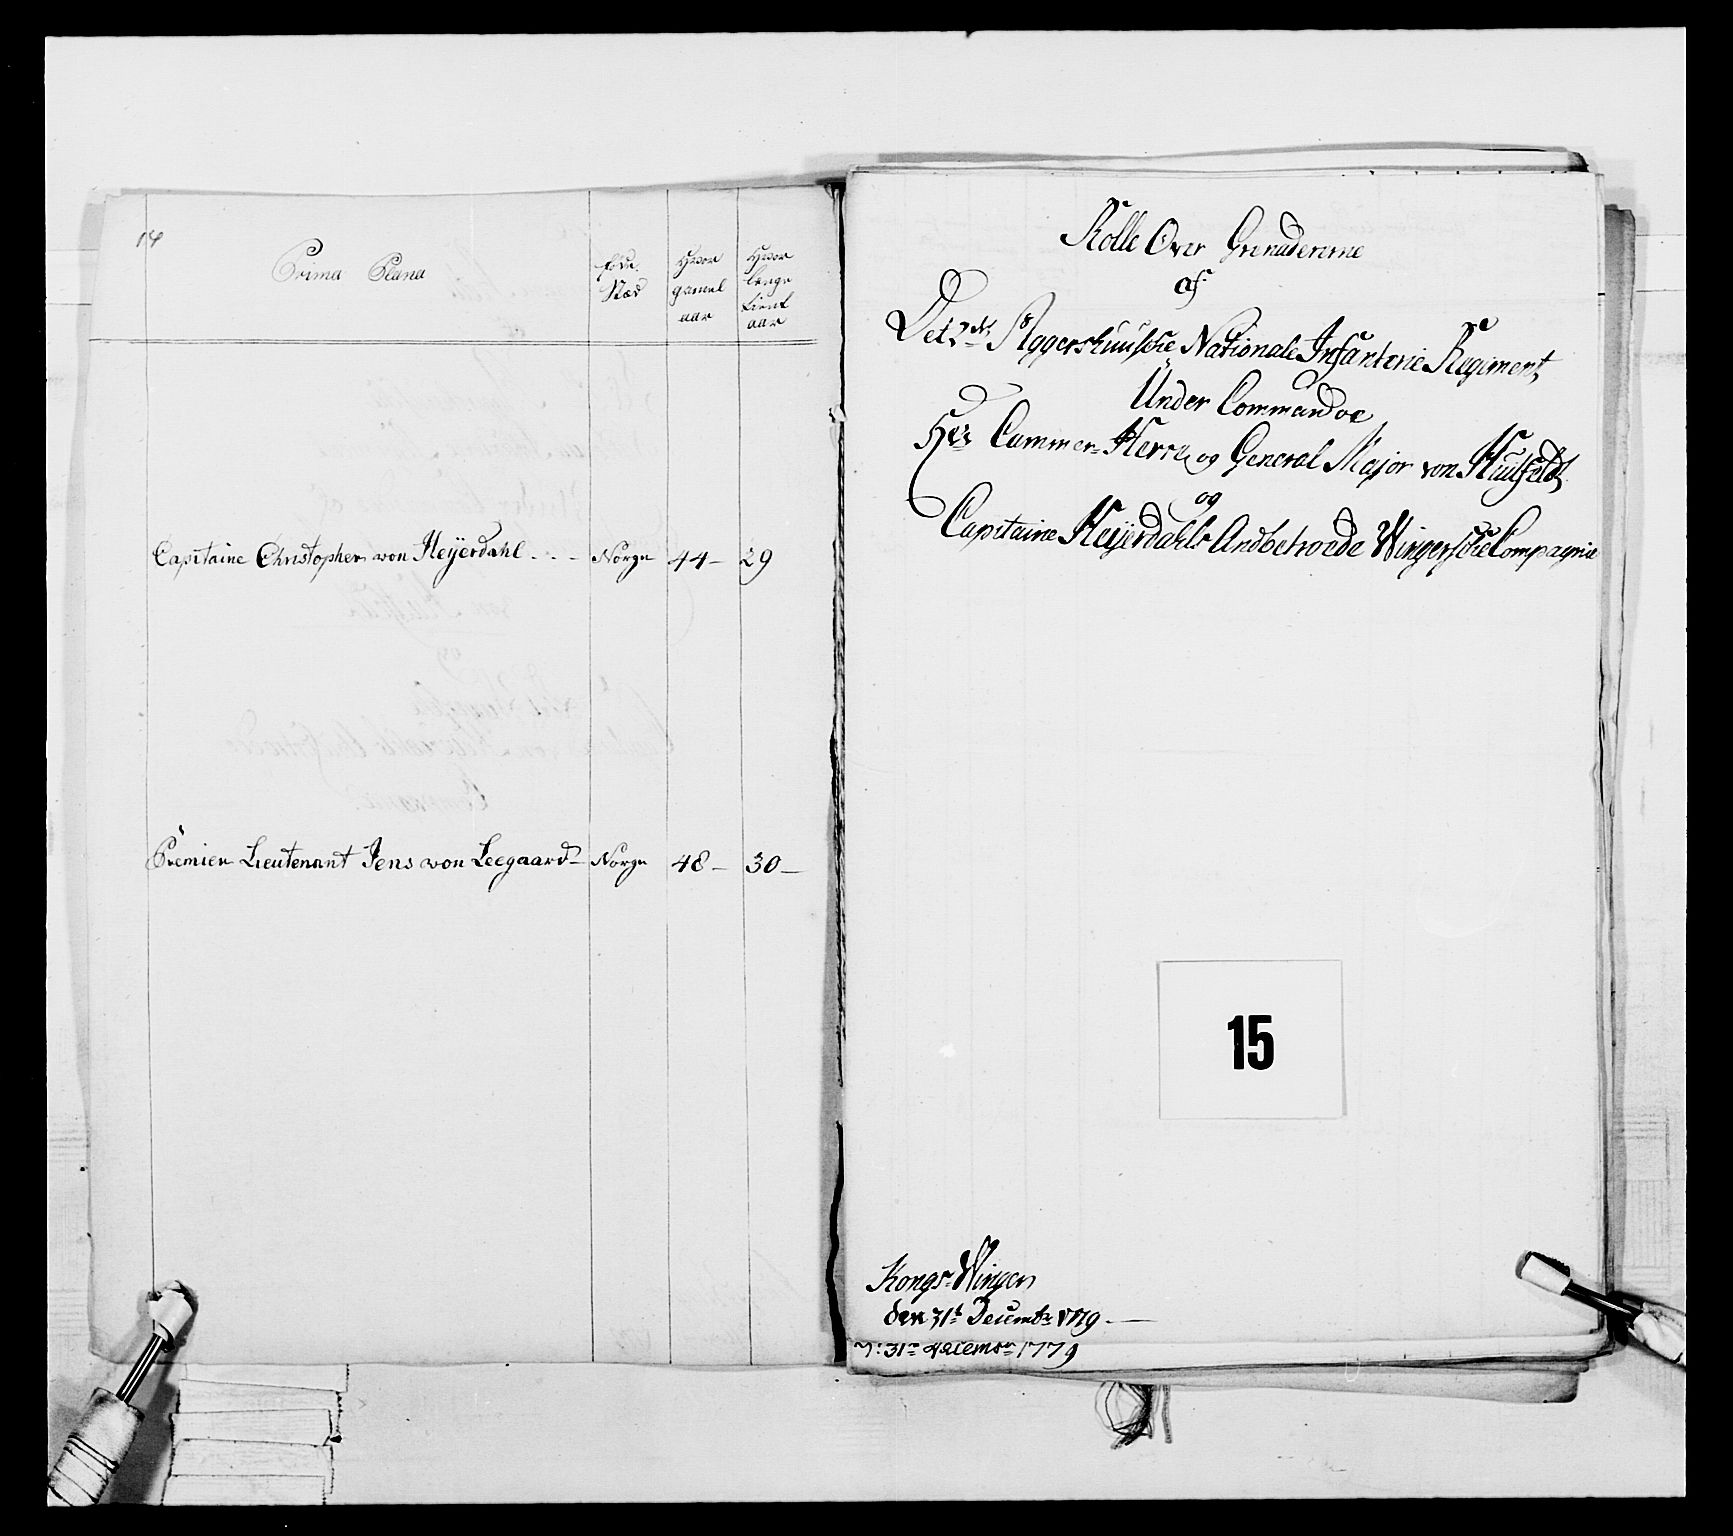 14
Prima Plana
Føde Stæd
Hvor gamel aar
Hvor lenge tient aar
Capitaine Christopher von Heÿerdahl . . . - Norge 44- 29
Premier Lieutenant Jens von Leegaard- Norge 48- 30-
Rolle Over Grenadererne
af
Det 2det Aggershuusiche Nationale Infanterie Regiment,
Under Commandoe
Hr Cammer-Herre og General Major von Hutfeldt
og
Capitaine Heÿerdahls Andbetroede Wingersche Compagnie
15
Kongs-Winger
den 31t Decembr 1779.
31te Decembr 1779